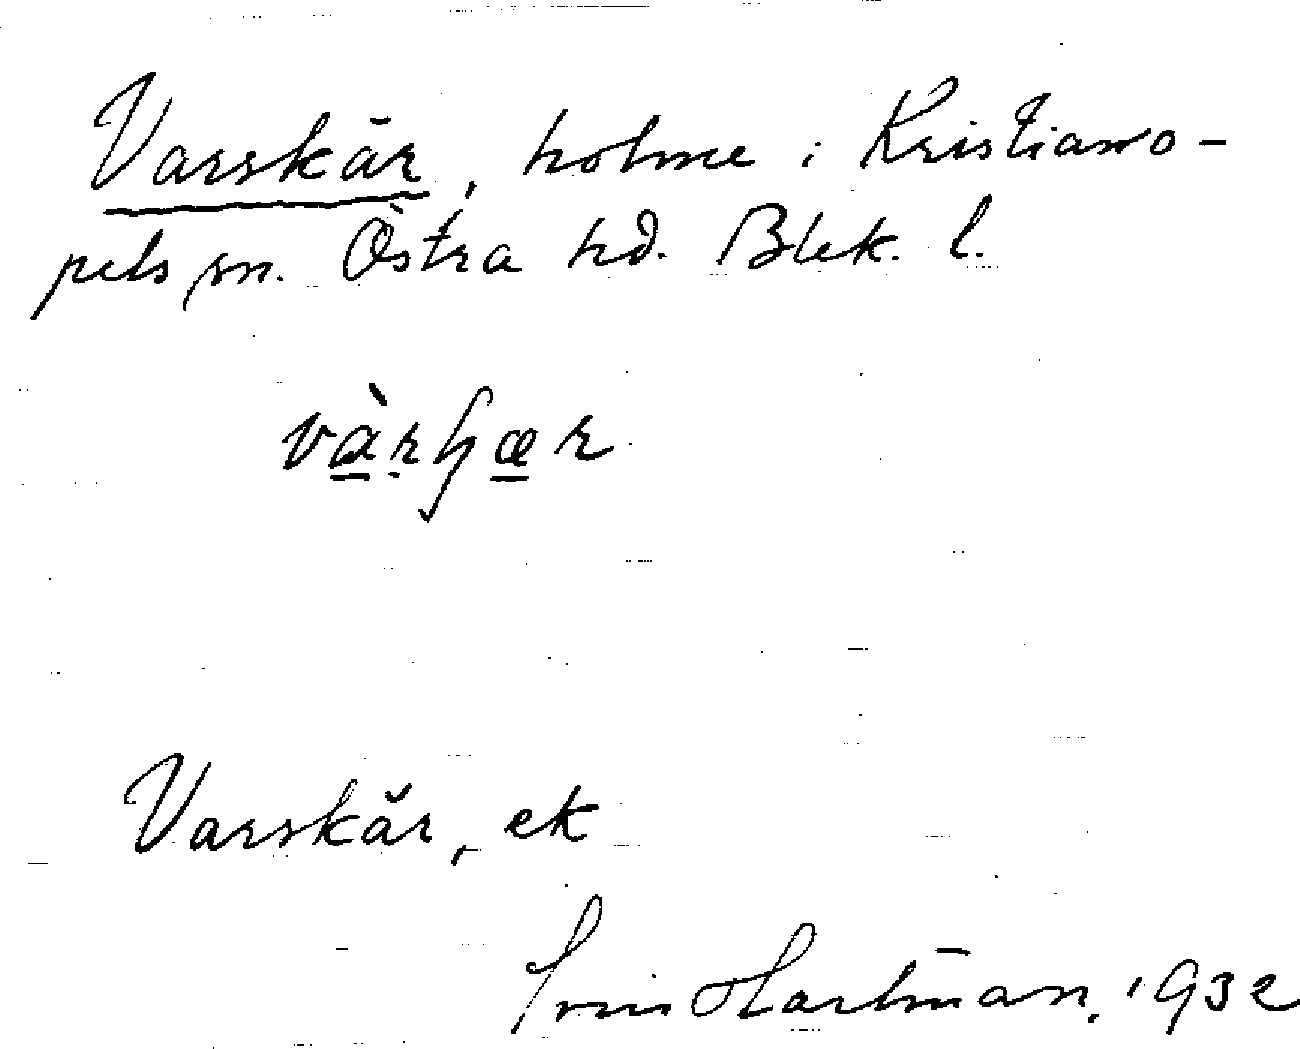 Varskär, holme i Kristiano-
pels sn. Östra hd. Blek. l.
vàrɧær
Varskär, ek
Hartman. 1932